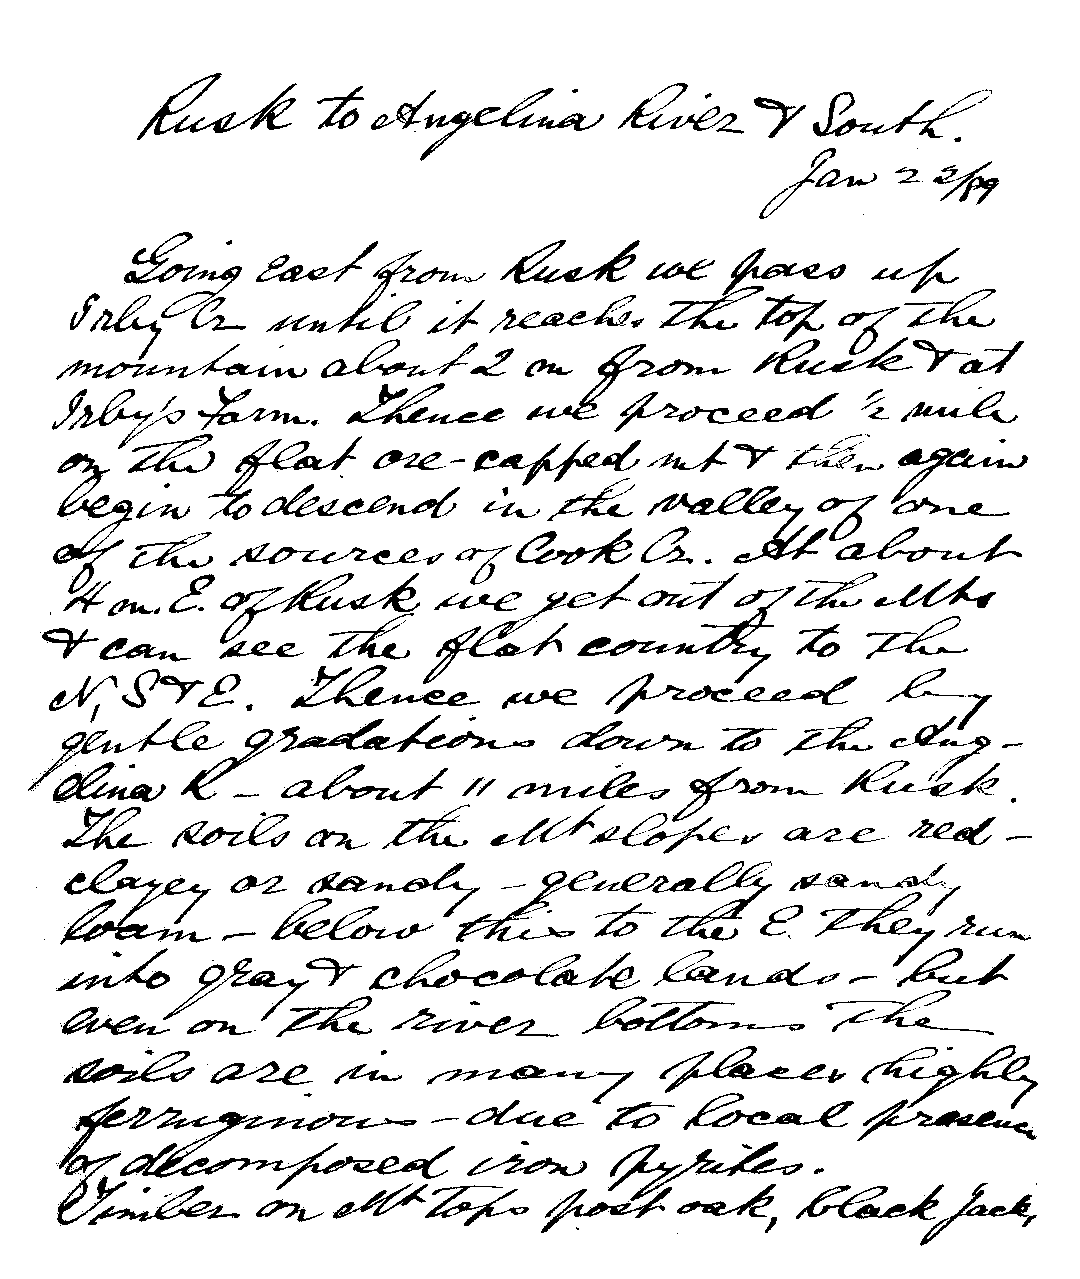 Rusk to Angelina River & South.
Jan 22/89
Going east from Rusk we pass up
Irby Cr until it reaches the top of the
mountain about 2 m from Rusk & at
Irby's Farm. Thence we proceed ½ mile
on the flat ore-capped mt & then again
begin to descend in the valley of one
of the sources of Cook Cr. At about
4 m. E. of Rusk we get out of the Mts
& can see the flat country to the
N, S & E. Thence we proceed by
gentle gradations down to the Ang-
elina R - about 11 miles from Rusk.
The soils on the Mt slopes are red -
clayey or sandy - generally sandy
loam - below this to the E. they run
into gray & chocolate lands - but
even on the river bottoms the
soils are in many places highly
ferruginous - due to local presence
of decomposed iron pyrites.
Timber on Mt tops post oak, black Jack,